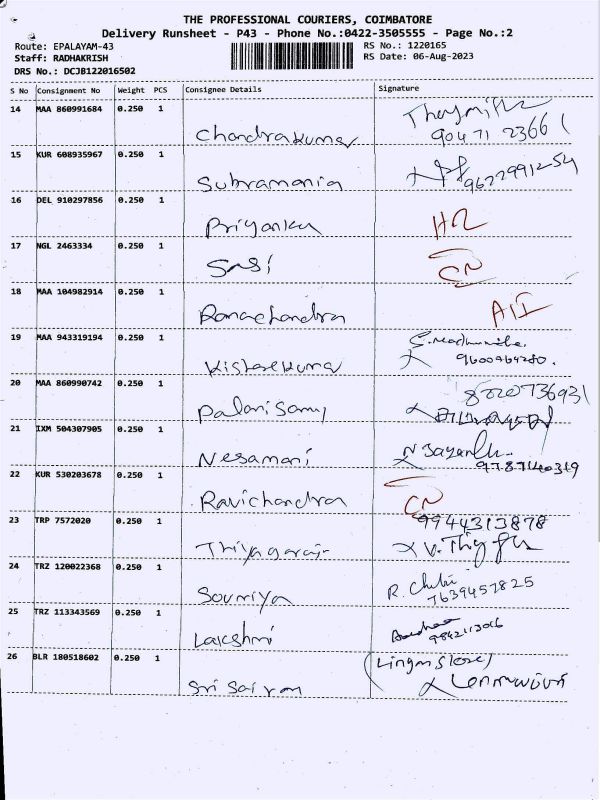 THE PROFESSIONAL COURIERS, COIMBATORE
Delivery Runsheet - P43 - Phone No.:0422-3505555 - Page No.:2
Route: EPALAYAM-43 RS No.: 1220165
Staff: RADHAKRISH RS Date: 06-Aug-2023
DRS No.: DCJB122016502
S No Consignment No Weight PCS Consignee Details Signature
14 MAA 860991684 0.250 1
Chandrakumar 90471 23661
15 KUR 608935967 0.250 1
Subramania 9622991254
16 DEL 910297856 0.250 1
Priyanka HR
17 NGL 2463334 0.250 1
Sasi CN
18 MAA 104982914 0.250 1
Ramachandra AII
19 MAA 943319194 0.250 1
Kishorekumar 9600964280.
20 MAA 860990742 0.250 1 8220736931
Palanisamy
21 IXM 504307905 0.250 1
Nesamani 9787140319
22 KUR 530203678 0.250 1
Ravichandra CN
23 TRP 7572020 0.250 1 9944313878
Thiyagaraj
24 TRZ 120022368 0.250 1
Soumiya 7639457825
25 TRZ 113343569 0.250 1
Lakshmi 9842113016
26 BLR 180518602 0.250 1 (Lingam Store)
Sri Sai ram